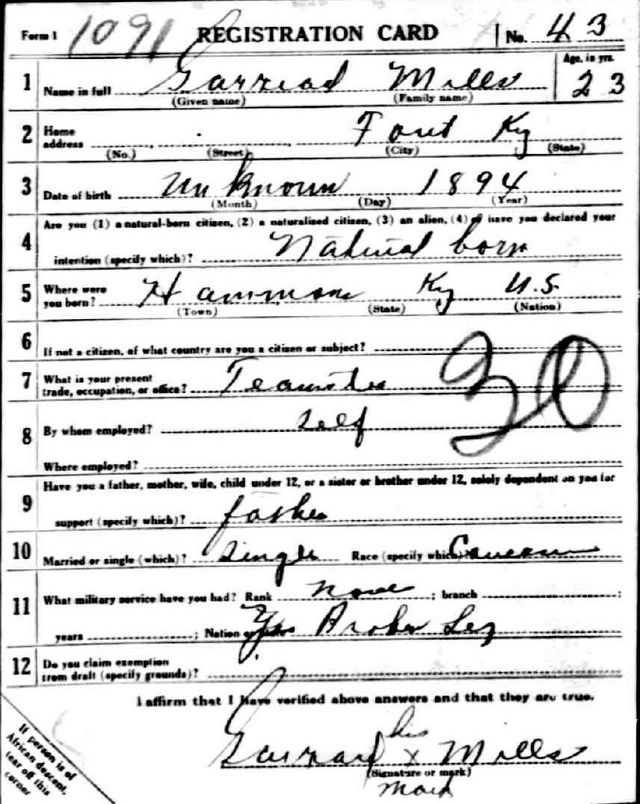 Form 1 1091 REGISTRATION CARD No. 43
1 Name in full Garriad Mills Age, in yrs. 23
(Given name) (Family name)
2 Home address Fount Ky
(No.) (Street) (City) (State)
3 Date of birth Unknown 1894
(Month) (Day) (Year)
4 Are you (1) a natural-born citizen, (2) a naturalized citizen, (3) an alien, (4) or have you declared your
intention (specify which)? Natural born
5 Where were you born? Hammon Ky U.S.
(Town) (State) (Nation)
6 If not a citizen, of what country are you a citizen or subject?
7 What is your present trade, occupation, or office? Teamster 30
8 By whom employed? Self
Where employed?
9 Have you a father, mother, wife, child under 12, or a sister or brother under 12, solely dependent on you for
support (specify which)? father
10 Married or single (which)? Single Race (specify which)? Caucasian
11 What military service have you had? Rank None ; branch ;
years ; Nation or State Yes Broken Leg
12 Do you claim exemption from draft (specify grounds)?
I affirm that I have verified above answers and that they are true.
his
Garrard x Mills
(Signature or mark)
mark
If person is of
African descent,
tear off this
corner